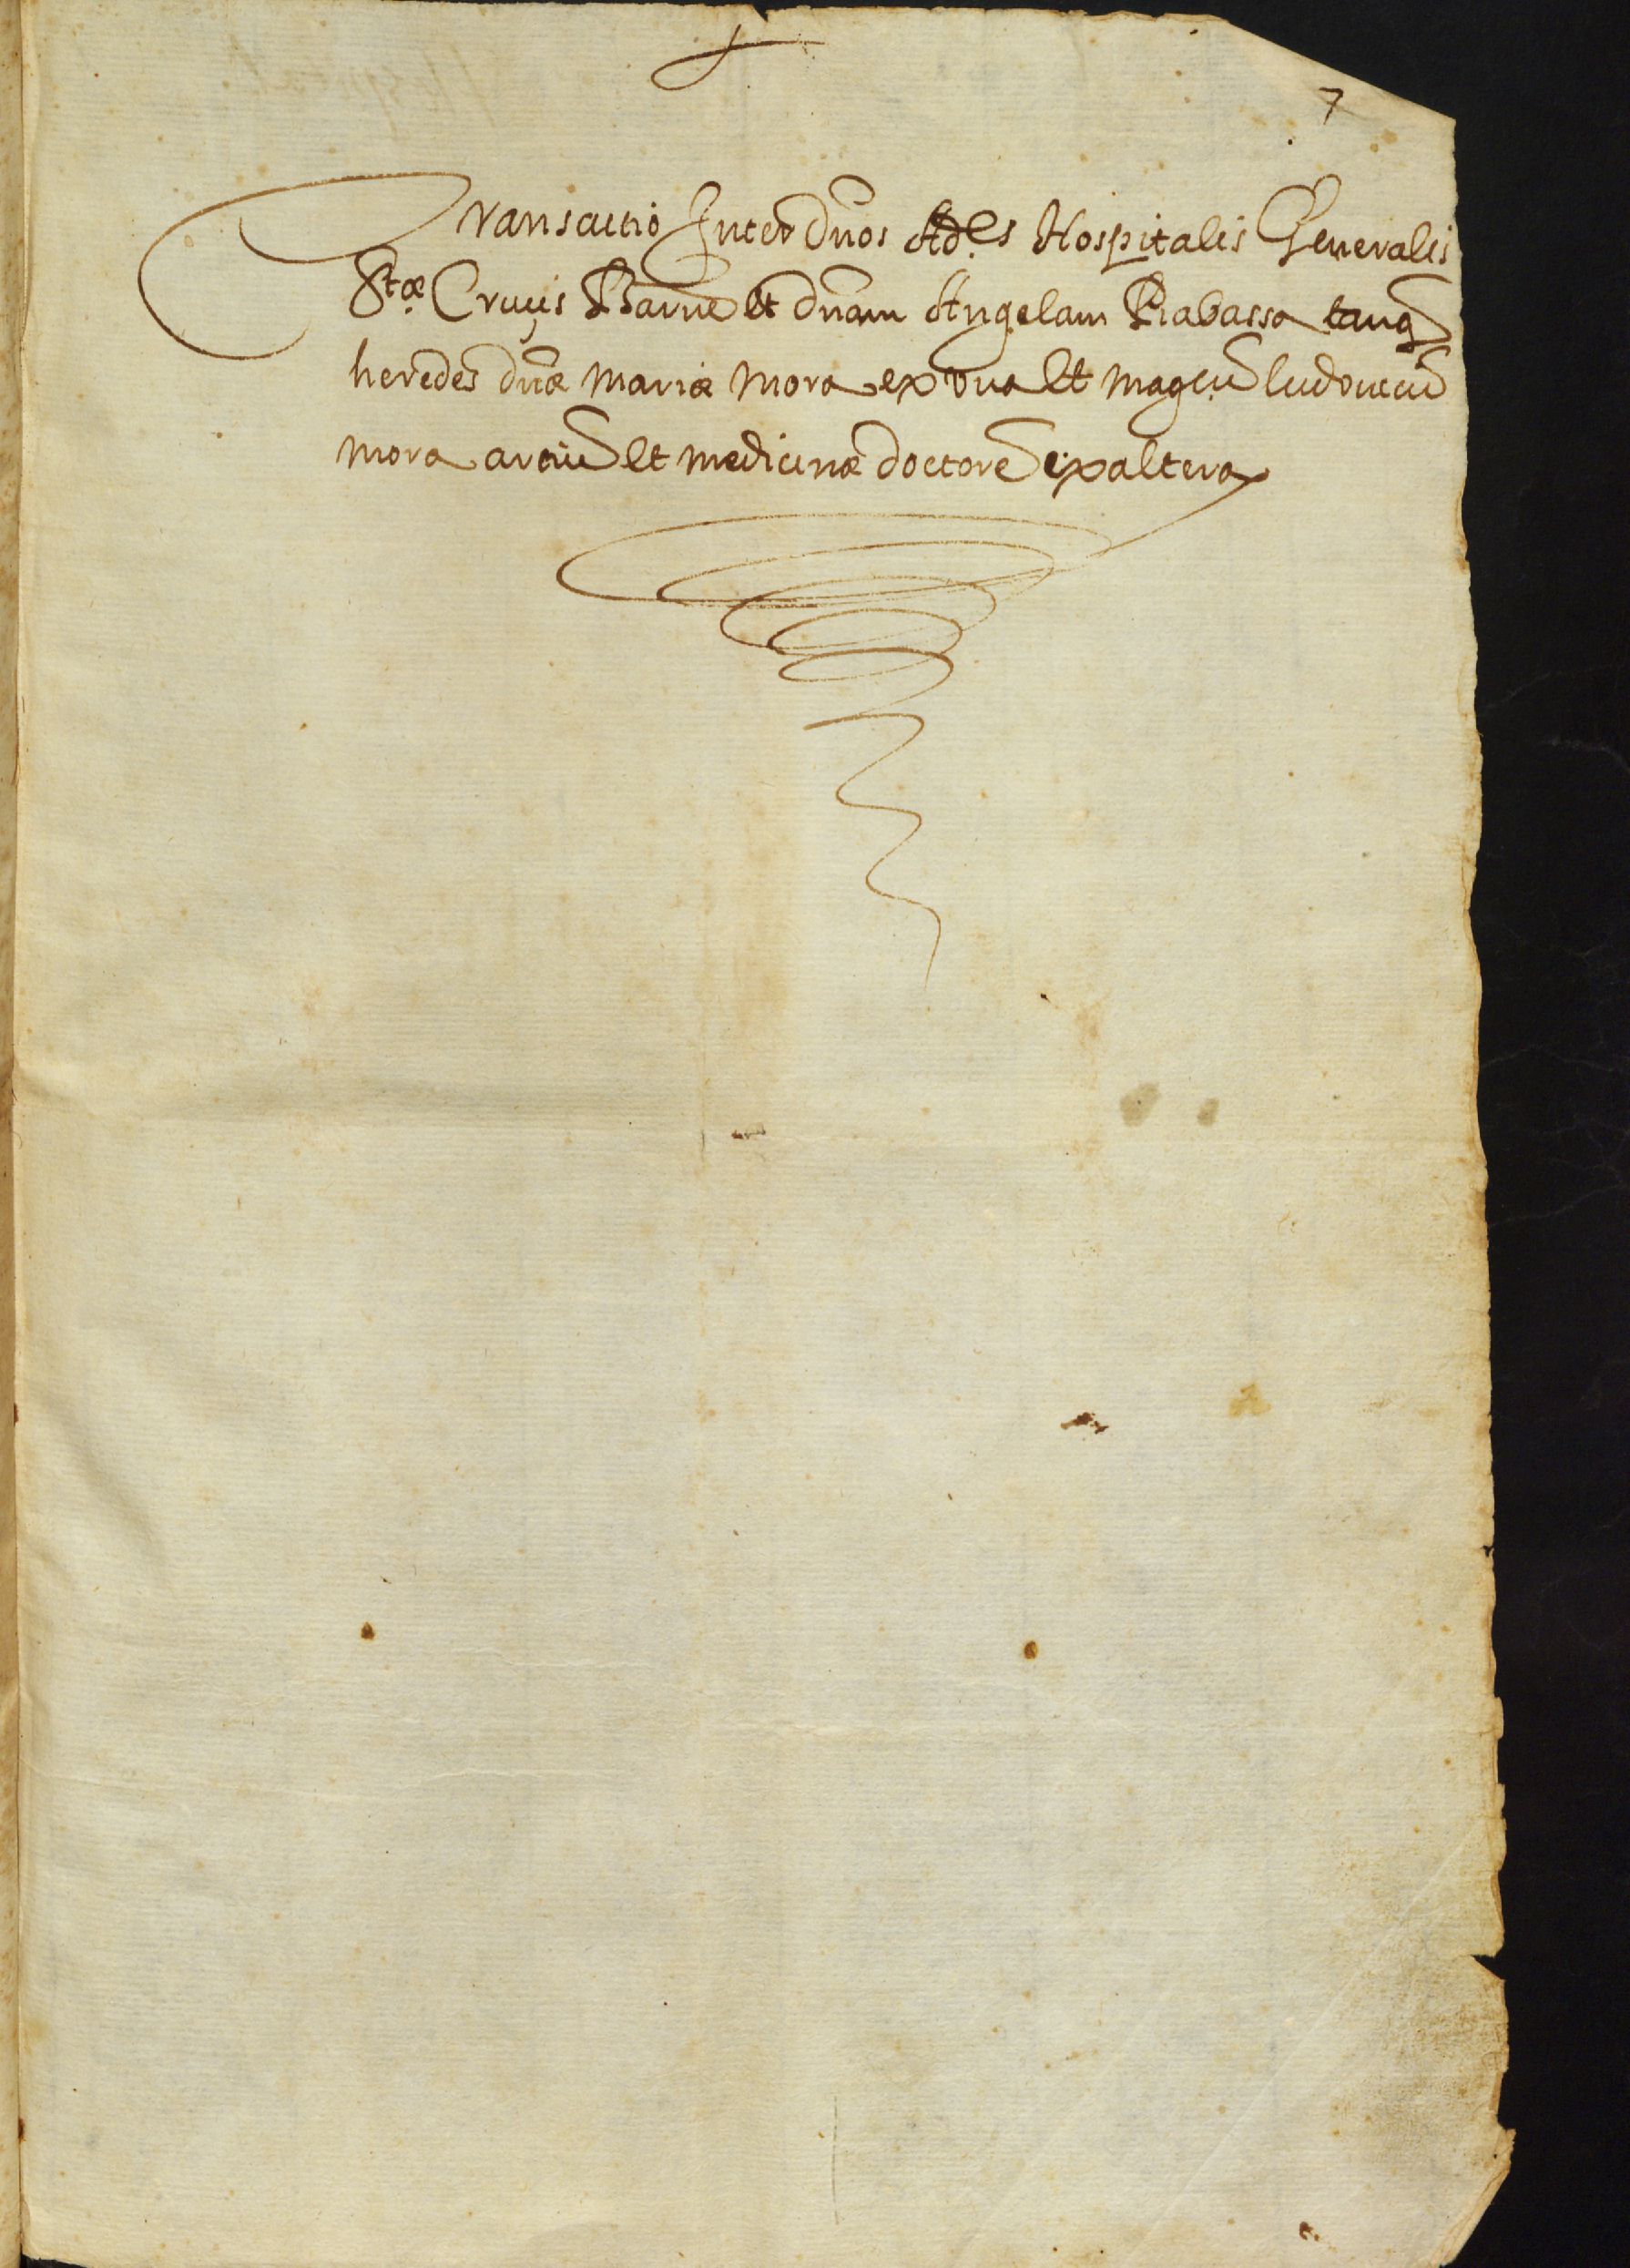 7
Transactio Inter dños Ad.es Hospitalis Generalis
S.tæ Crucis Barne et dñam Angelam Rabassa tanq̃
heredes dñæ Mariæ Mora ex vna et mag.cũ ludouicũ
Mora artiũ et Medicinæ doctorẽ ex altera